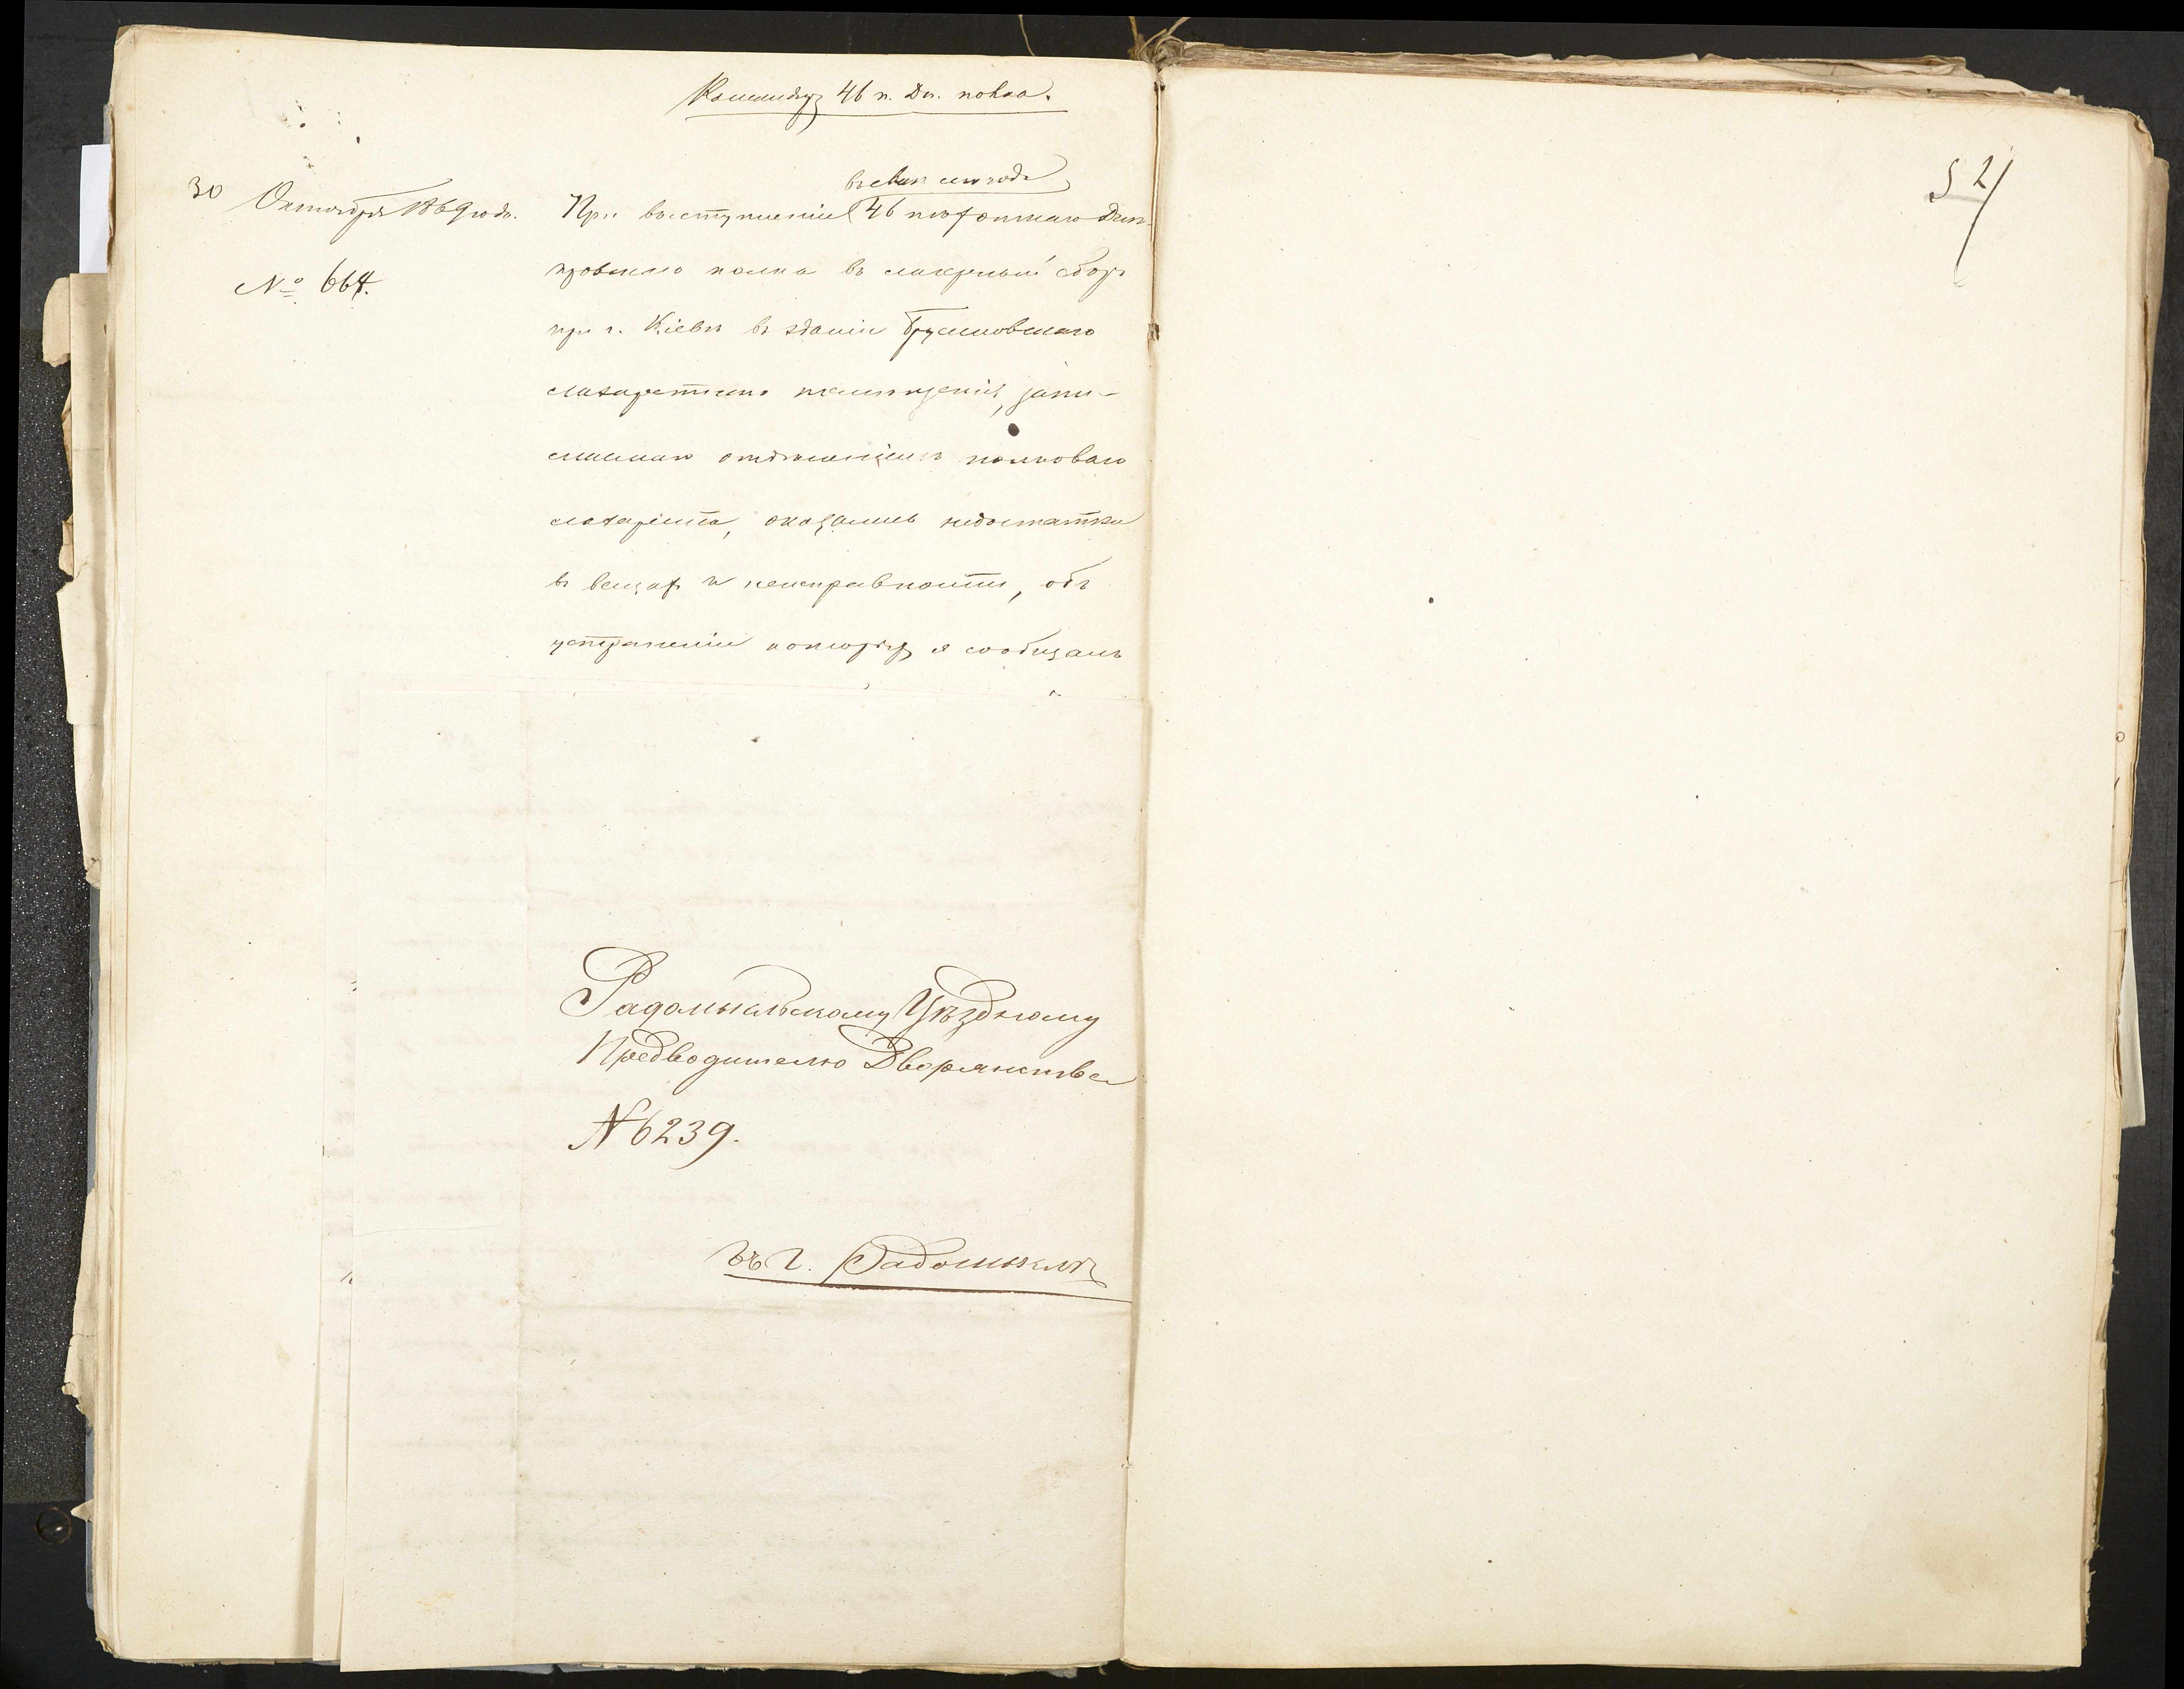 Командиру 46 п. Дн. полка.
30 Октября 1869 года.
№ 664.
сего года
При выступленіи 46 пѣхотнаго Днѣ-
провскаго полка въ лагерный сборъ
при г. Кіевѣ въ зданіи Брусиловскаго
лазаретнаго помѣщенія, зани-
маемаго отдѣленіемъ полковаго
лазарета, оказались недостатки
въ вещахъ и неисправности, объ
устраненіи которыхъ я сообщалъ
Радомысльскому Уѣздному
Предводителю Дворянства
№ 6239.
въ г. Радомыслѣ
52